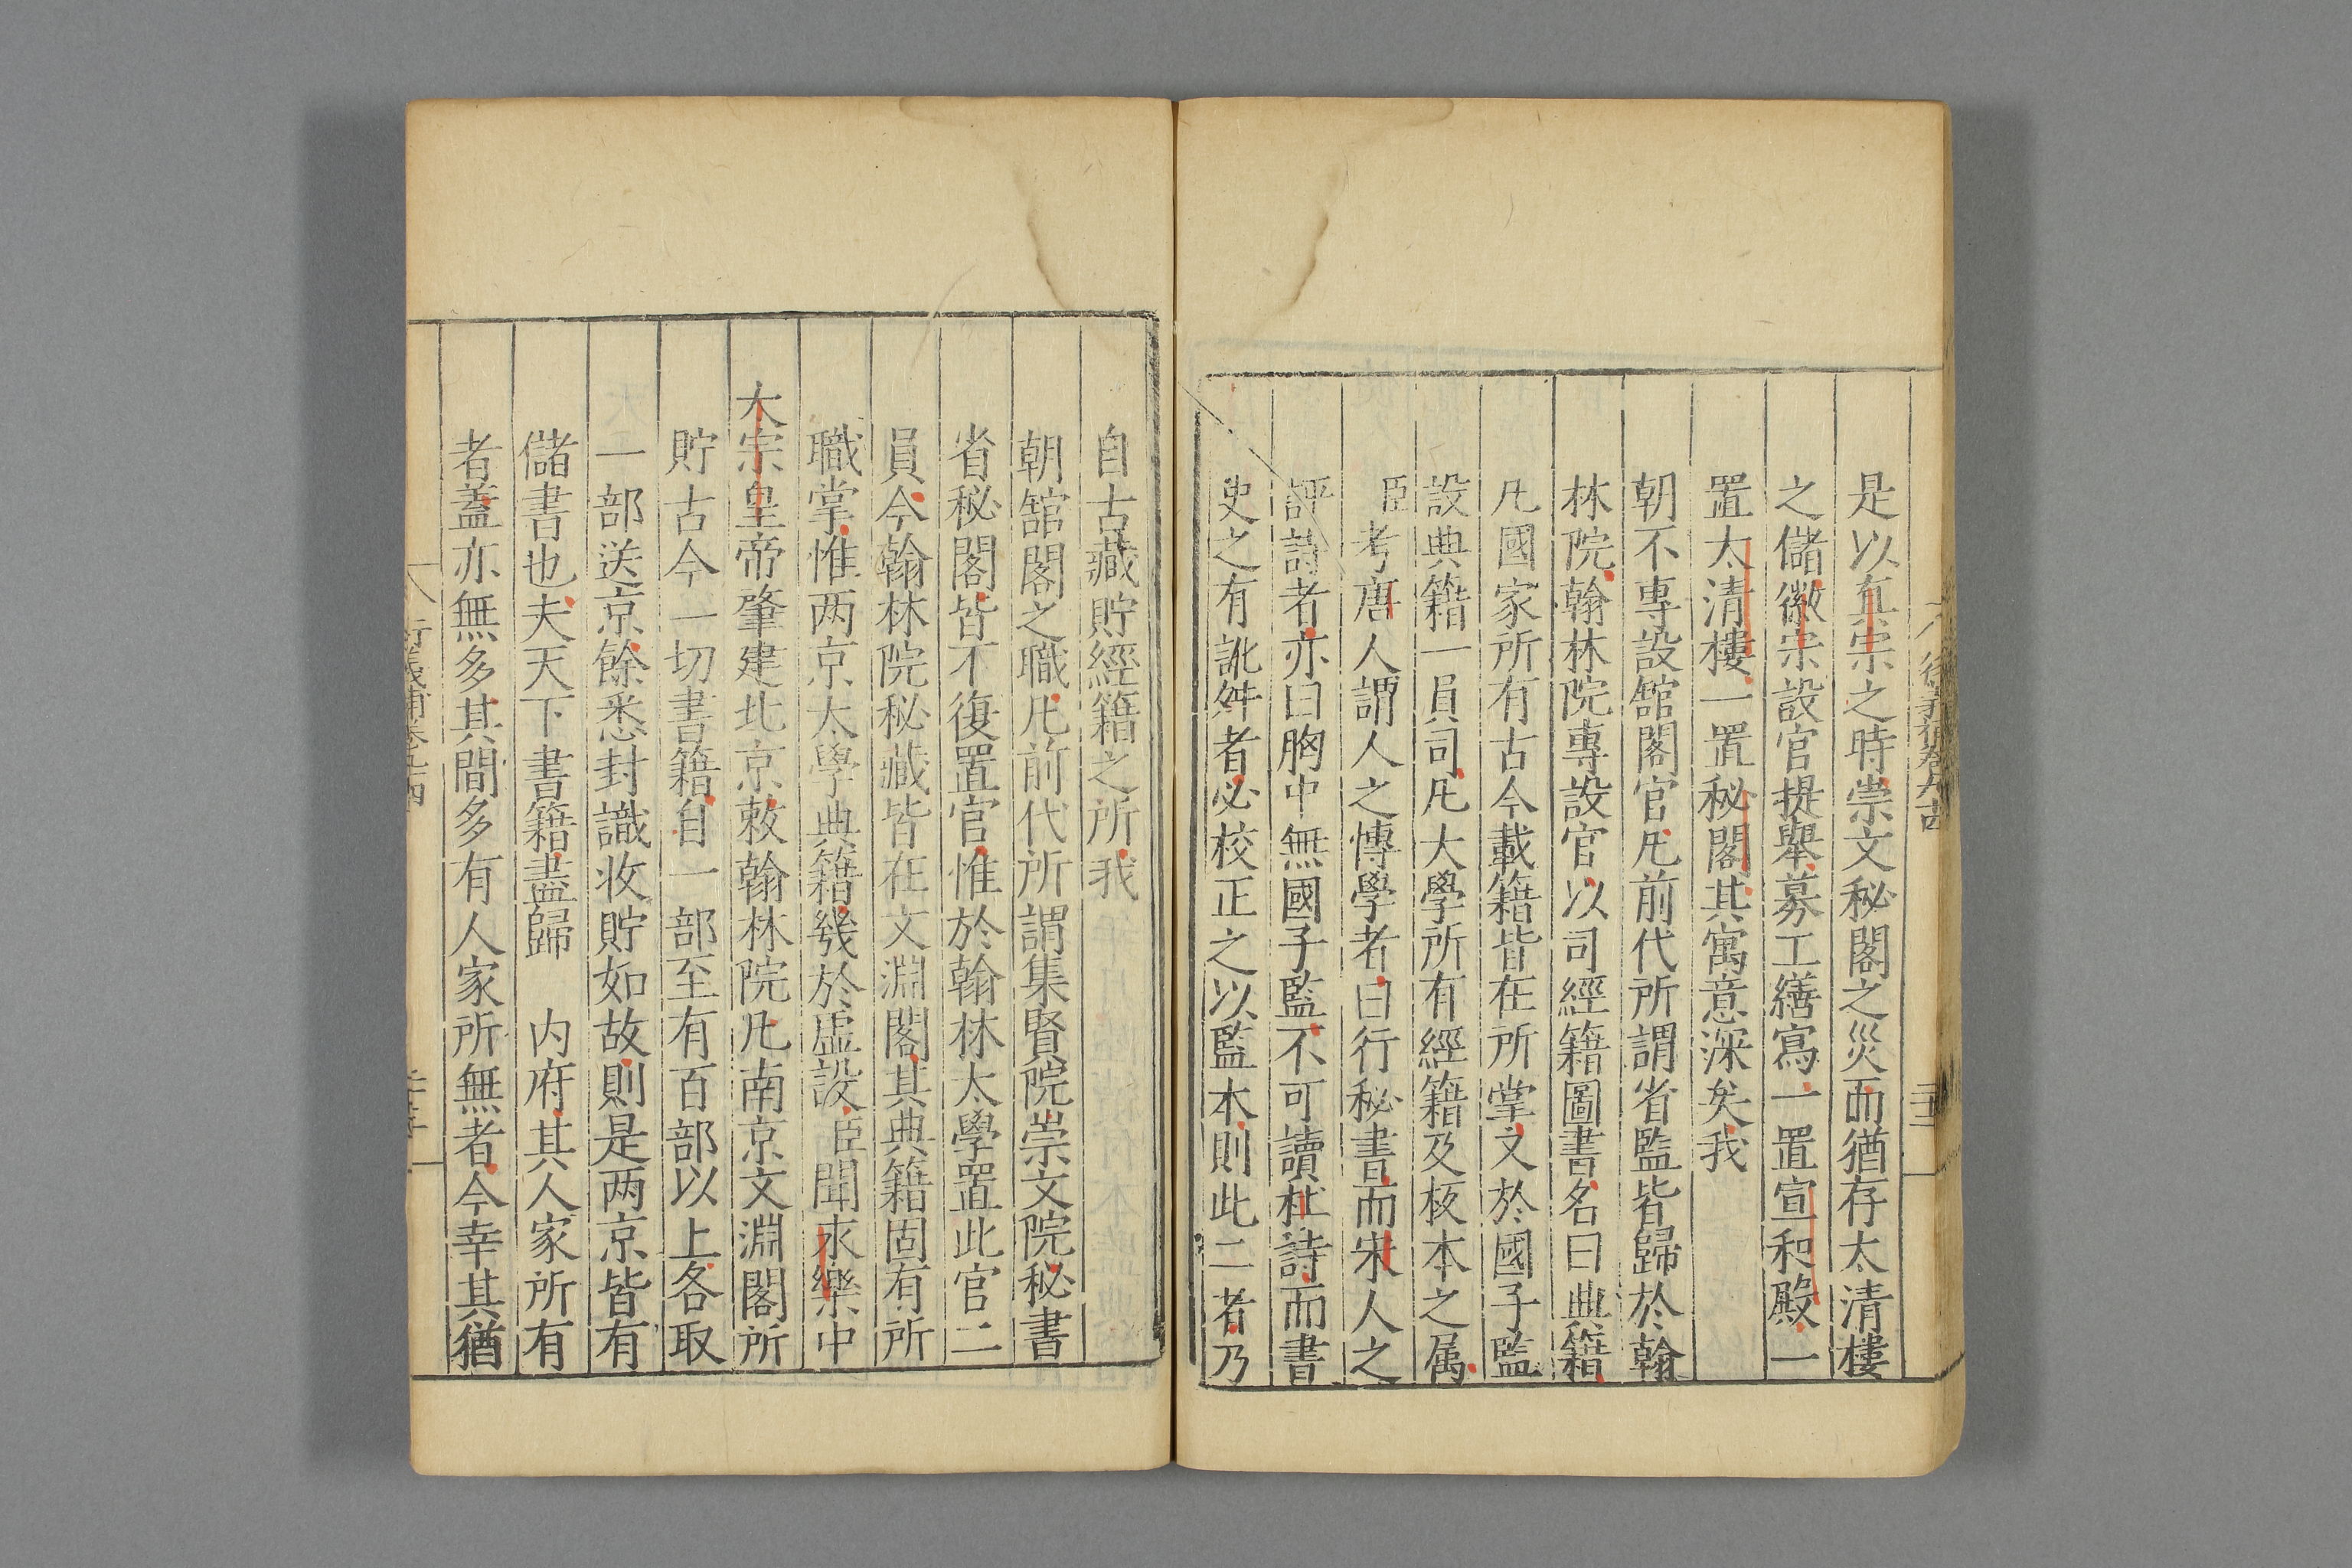 是以真宗之時崇文秘閣之災而猶存太清樓
之儲徽宗設官提舉募工繕寫一置宣和殿一
置太清樓一置秘閣其寓意深矣我
朝不專設舘閣官凡前代所謂省監皆歸於翰
林院翰林院專設官以司經籍圖書名曰典籍
凡國家所有古今載籍皆在所掌文於國子監
設典籍一員司凡大學所有經籍及板本之属
臣考唐人謂人之慱學者曰行秘書而宋人之
評詩者亦曰胸中無國子監不可讀杜詩而書
史之有訛舛者必校正之以監本則此二者乃
自古藏貯經籍之所我
朝舘閣之職凡前代所謂集賢院崇文院秘書
省秘閣皆不復置官惟於翰林太學置此官二
員今翰林院秘藏皆在文淵閣其典籍固有所
職掌惟两京太學典籍幾於虛設臣聞永樂中
太宗皇帝肇建北京敕翰林院凡南京文淵閣所
貯古今一切書籍自一部至有百部以上各取
一部送京餘悉封識收貯如故則是两京皆有
儲書也夫天下書籍盡歸　内府其人家所有
者蓋亦無多其間多有人家所無者今幸其猶